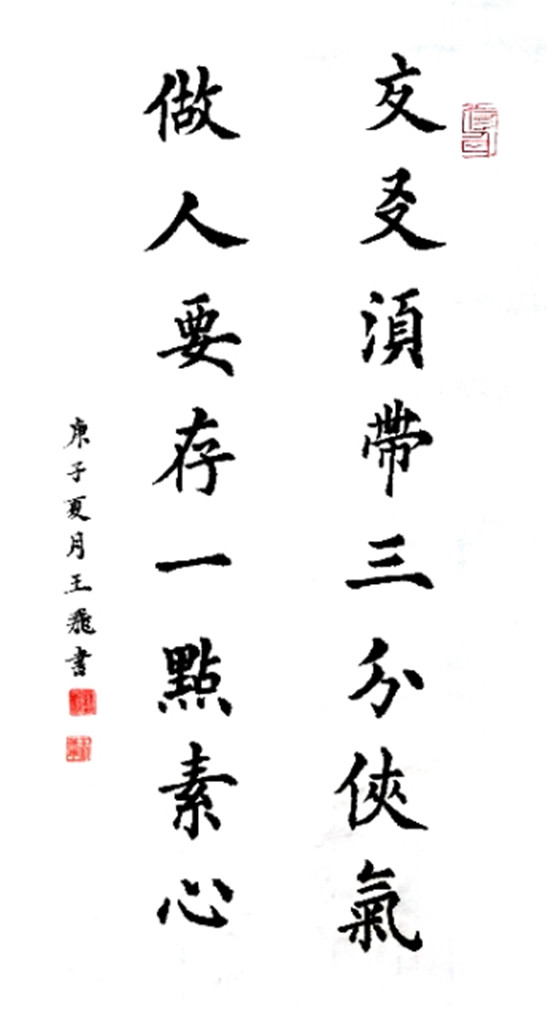 交友須帶三分俠氣
做人要存一點素心
庚子夏月王飛書